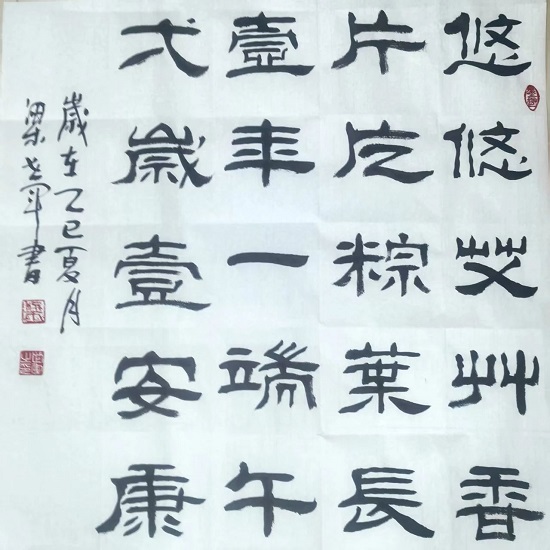 悠悠艾艸香
片片粽葉長
壹年一端午
弌歲壹安康
歲在乙巳夏月
梁世军書